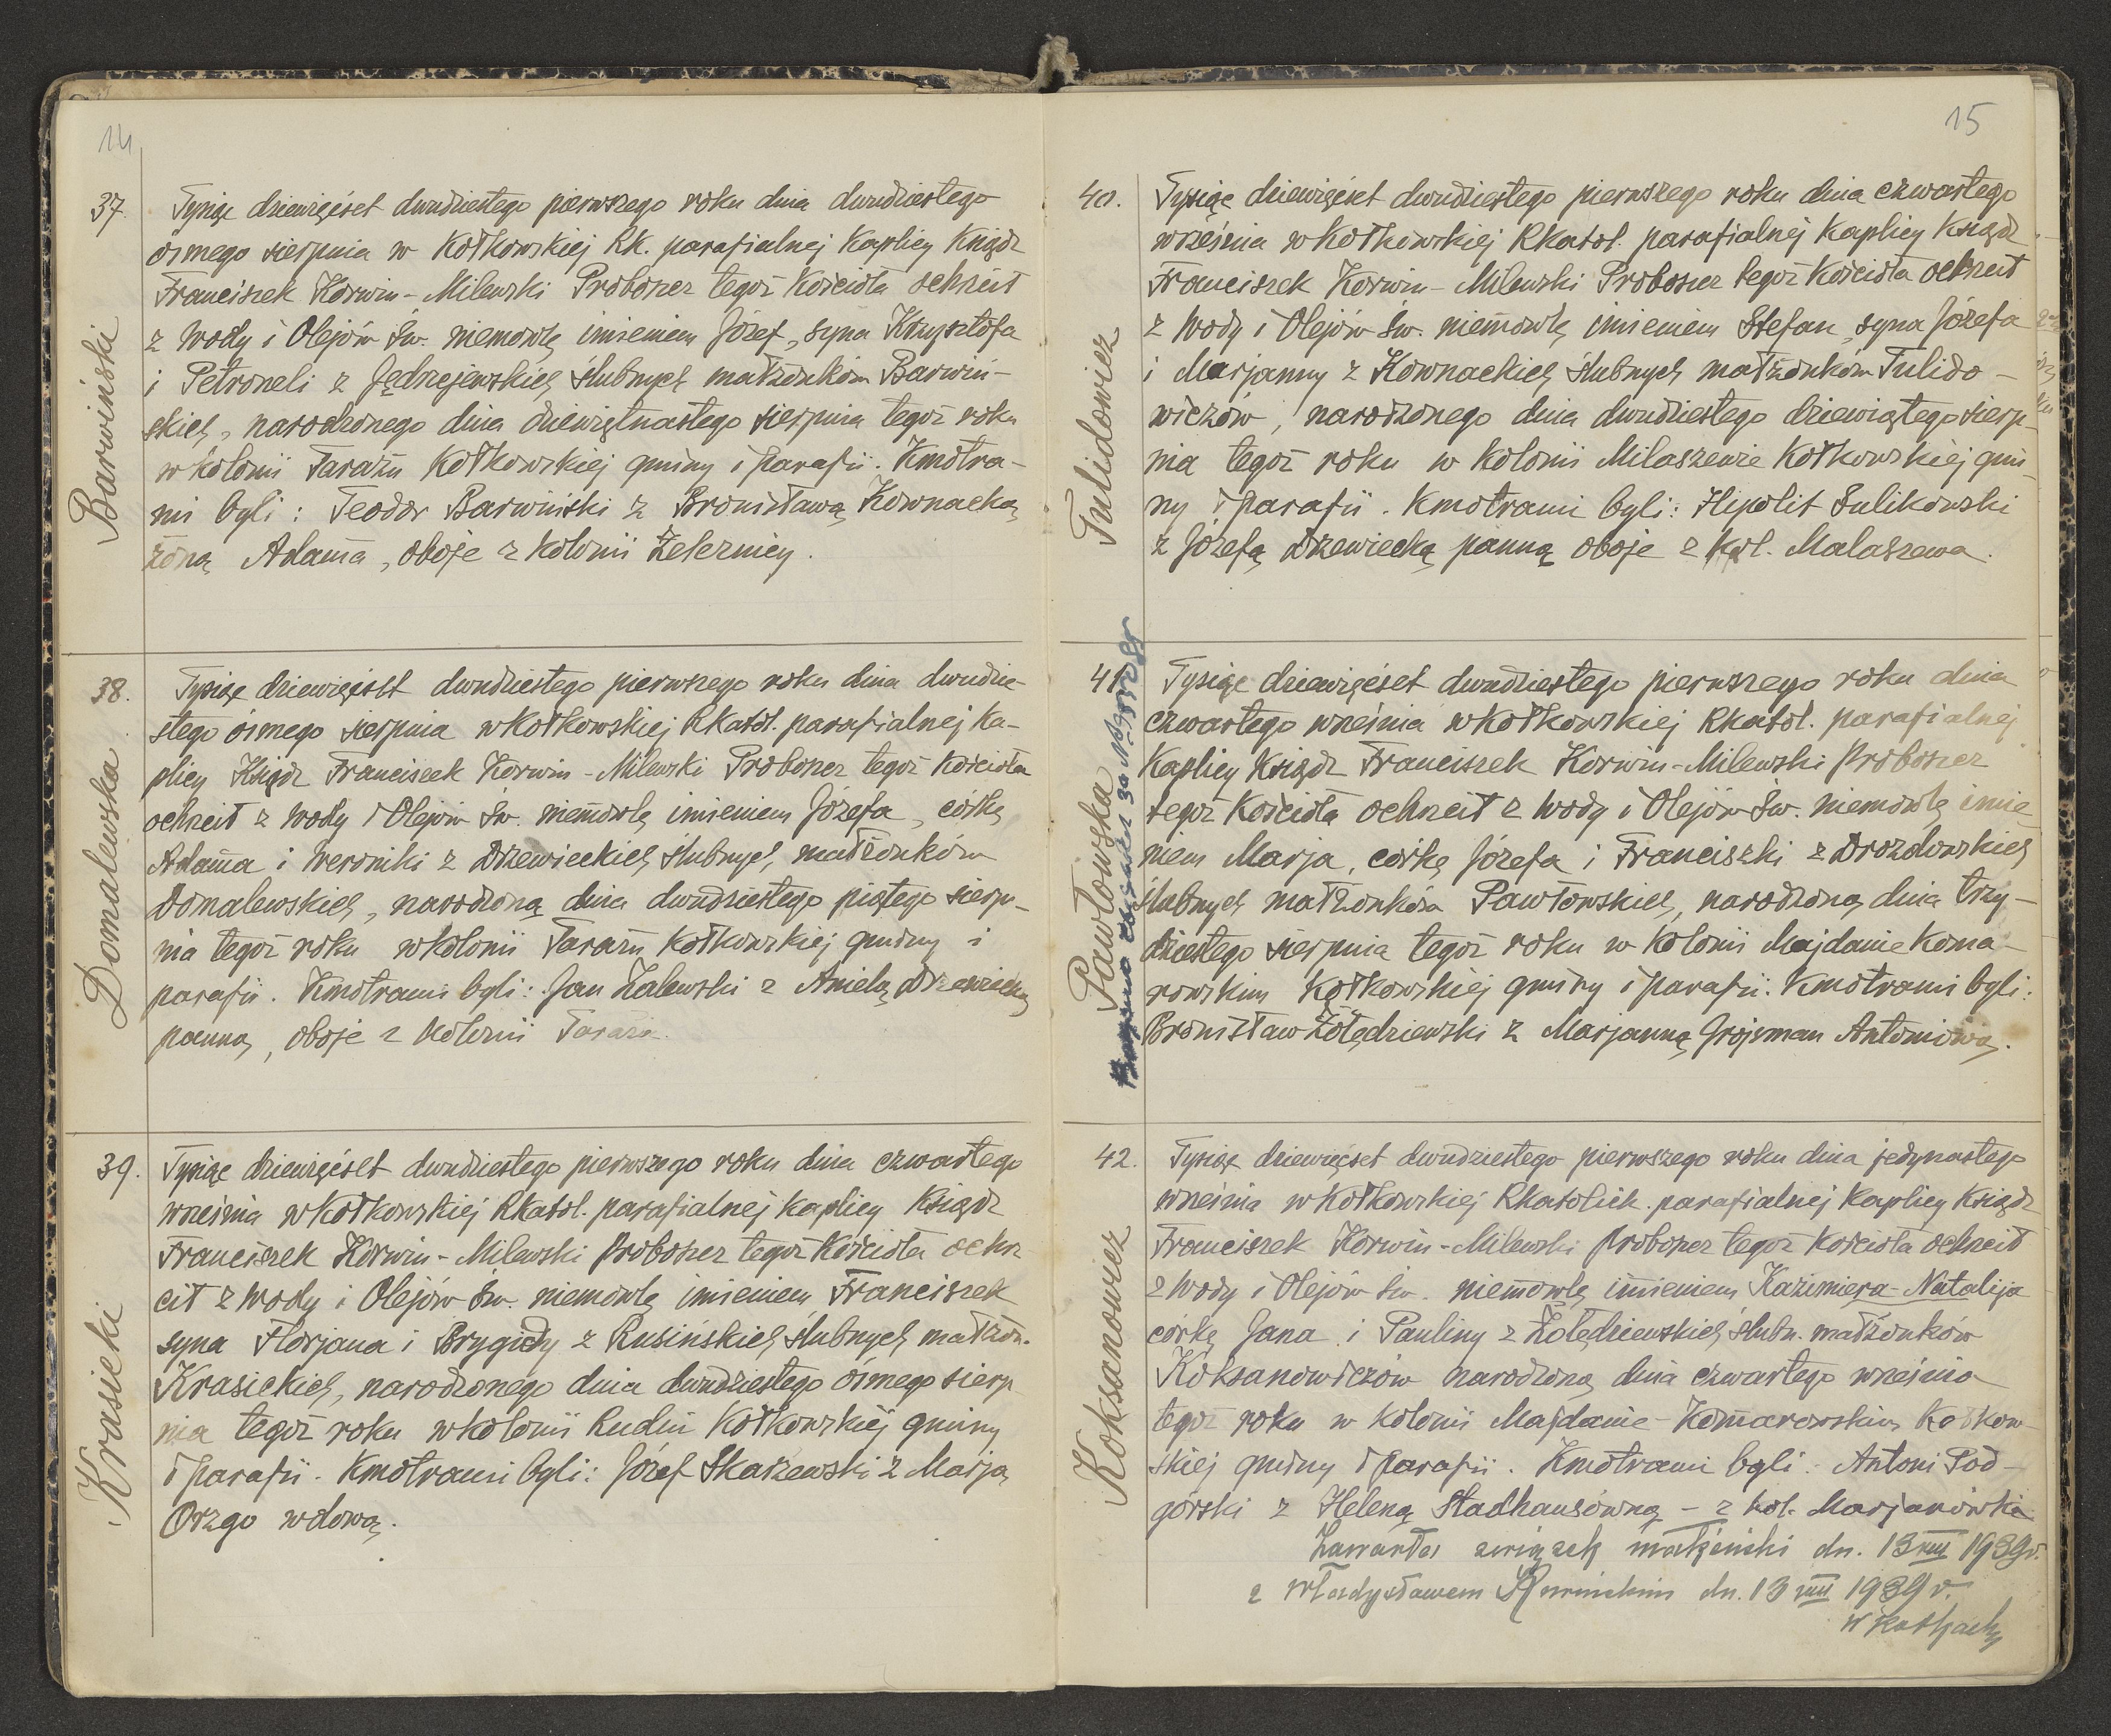 14
37.
Barwiński
Tysiąc dziewięćset dwudziestego pierwszego roku dnia dwudziestego
ósmego sierpnia w Kołkowskiej Rk. parafialnej Kaplicy Ksiądz
Franciszek Korwin-Milewski Proboszcz tegoż Kościoła ochrzcił
z Wody i Olejów Św. niemowlę imieniem Józef, syna Krzysztofa
i Petroneli z Jędrzejewskich ślubnych małżonków Barwiń-
skich, narodzonego dnia dziewiętnastego sierpnia tegoż roku
w kolonii Taraźu Kołkowskiej gminy i parafii. Kmotra-
mi byli: Teodor Barwiński z Bronisławą Kownacką
żoną Adama, oboje z kolonii Żeleznicy.
38.
Domalewska
Tysiąc dziewięćset dwudziestego pierwszego roku dnia dwudzie-
stego ósmego sierpnia w Kołkowskiej Rkatol. parafialnej Ka-
plicy Ksiądz Franciszek Korwin-Milewski Proboszcz tegoż Kościoła
ochrzcił z Wody i Olejów Św. niemowlę imieniem Józefa, córkę
Adama i Weroniki z Drzewieckich ślubnych małżonków
Domalewskich, narodzoną dnia dwudziestego piątego sierp-
nia tegoż roku w kolonii Taraźu Kołkowskiej gminy i
parafii. Kmotrami byli: Jan Zalewski z Anielą Drzewiecką
panną, oboje z kolonii Taraźa.
39.
Krasicki
Tysiąc dziewięćset dwudziestego pierwszego roku dnia czwartego
września w Kołkowskiej Rkatol. parafialnej kaplicy Ksiądz
Franciszek Korwin-Milewski Proboszcz tegoż Kościoła ochrz-
cił z Wody i Olejów Św. niemowlę imieniem Franciszek
syna Florjana i Brygidy z Rusińskich ślubnych małżon.
Krasickich, narodzonego dnia dwudziestego ósmego sierp-
nia tegoż roku w kolonii Rudni Kołkowskiej gminy
i parafii. Kmotrami byli: Józef Skarżewski z Marją
Orzgo wdową.
15
40.
Tulidowicz
Tysiąc dziewięćset dwudziestego pierwszego roku dnia czwartego
września w Kołkowskiej Rkatol. parafialnej Kaplicy Ksiądz
Franciszek Korwin-Milewski Proboszcz tegoż Kościoła ochrzcił
z Wody i Olejów Św. niemowlę imieniem Stefan, syna Józefa
i Marjanny z Kownackich ślubnych małżonków Tulido-
wiczów, narodzonego dnia dwudziestego dziewiątego sierp-
nia tegoż roku w kolonii Milaszewie Kołkowskiej gmi-
ny i parafii. Kmotrami byli: Hipolit Sulikowski
z Józefą Drzewiecką panną oboje z kol. Malaszewa.
41.
Pawłowska
Tysiąc dziewięćset dwudziestego pierwszego roku dnia
czwartego września w Kołkowskiej Rkatol. parafialnej
Kaplicy Ksiądz Franciszek Korwin-Milewski Proboszcz
tegoż Kościoła ochrzcił z Wody i Olejów Św. niemowlę imie-
niem Marja, córkę Józefa i Franciszki z Drozdowskich
ślubnych małżonków Pawłowskich, narodzoną dnia trzy-
dziestego sierpnia tegoż roku w Kolonii Majdanie Koma-
rowskim Kołkowskiej gminy i parafii. Kmotrami byli:
Bronisław Żołędziewski z Marjanną Grojsman Antoniową.
42.
Koksanowicz
Tysiąc dziewięćset dwudziestego pierwszego roku dnia jedynastego
września w Kołkowskiej Rkatolick. parafialnej Kaplicy Ksiądz
Franciszek Korwin-Milewski Proboszcz tegoż Kościoła ochrzcił
z Wody i Olejów Św. niemowlę imieniem Kazimiera-Natalija
córkę Jana i Pauliny z Żołędziewskich ślubn. małżonków
Koksanowiczów narodzoną dnia czwartego września
tegoż roku w kolonii Majdanie-Komarowskim Kołkow-
skiej gminy i parafii. Kmotrami byli: Antoni Pod-
górski z Heleną Stadhausówną - z kol. Marjanówki
Zawarła związek małżeński dn. 13 VIII 1939 r.
z Władysławem dn. 13 VIII 1939 r.
w Kołkach